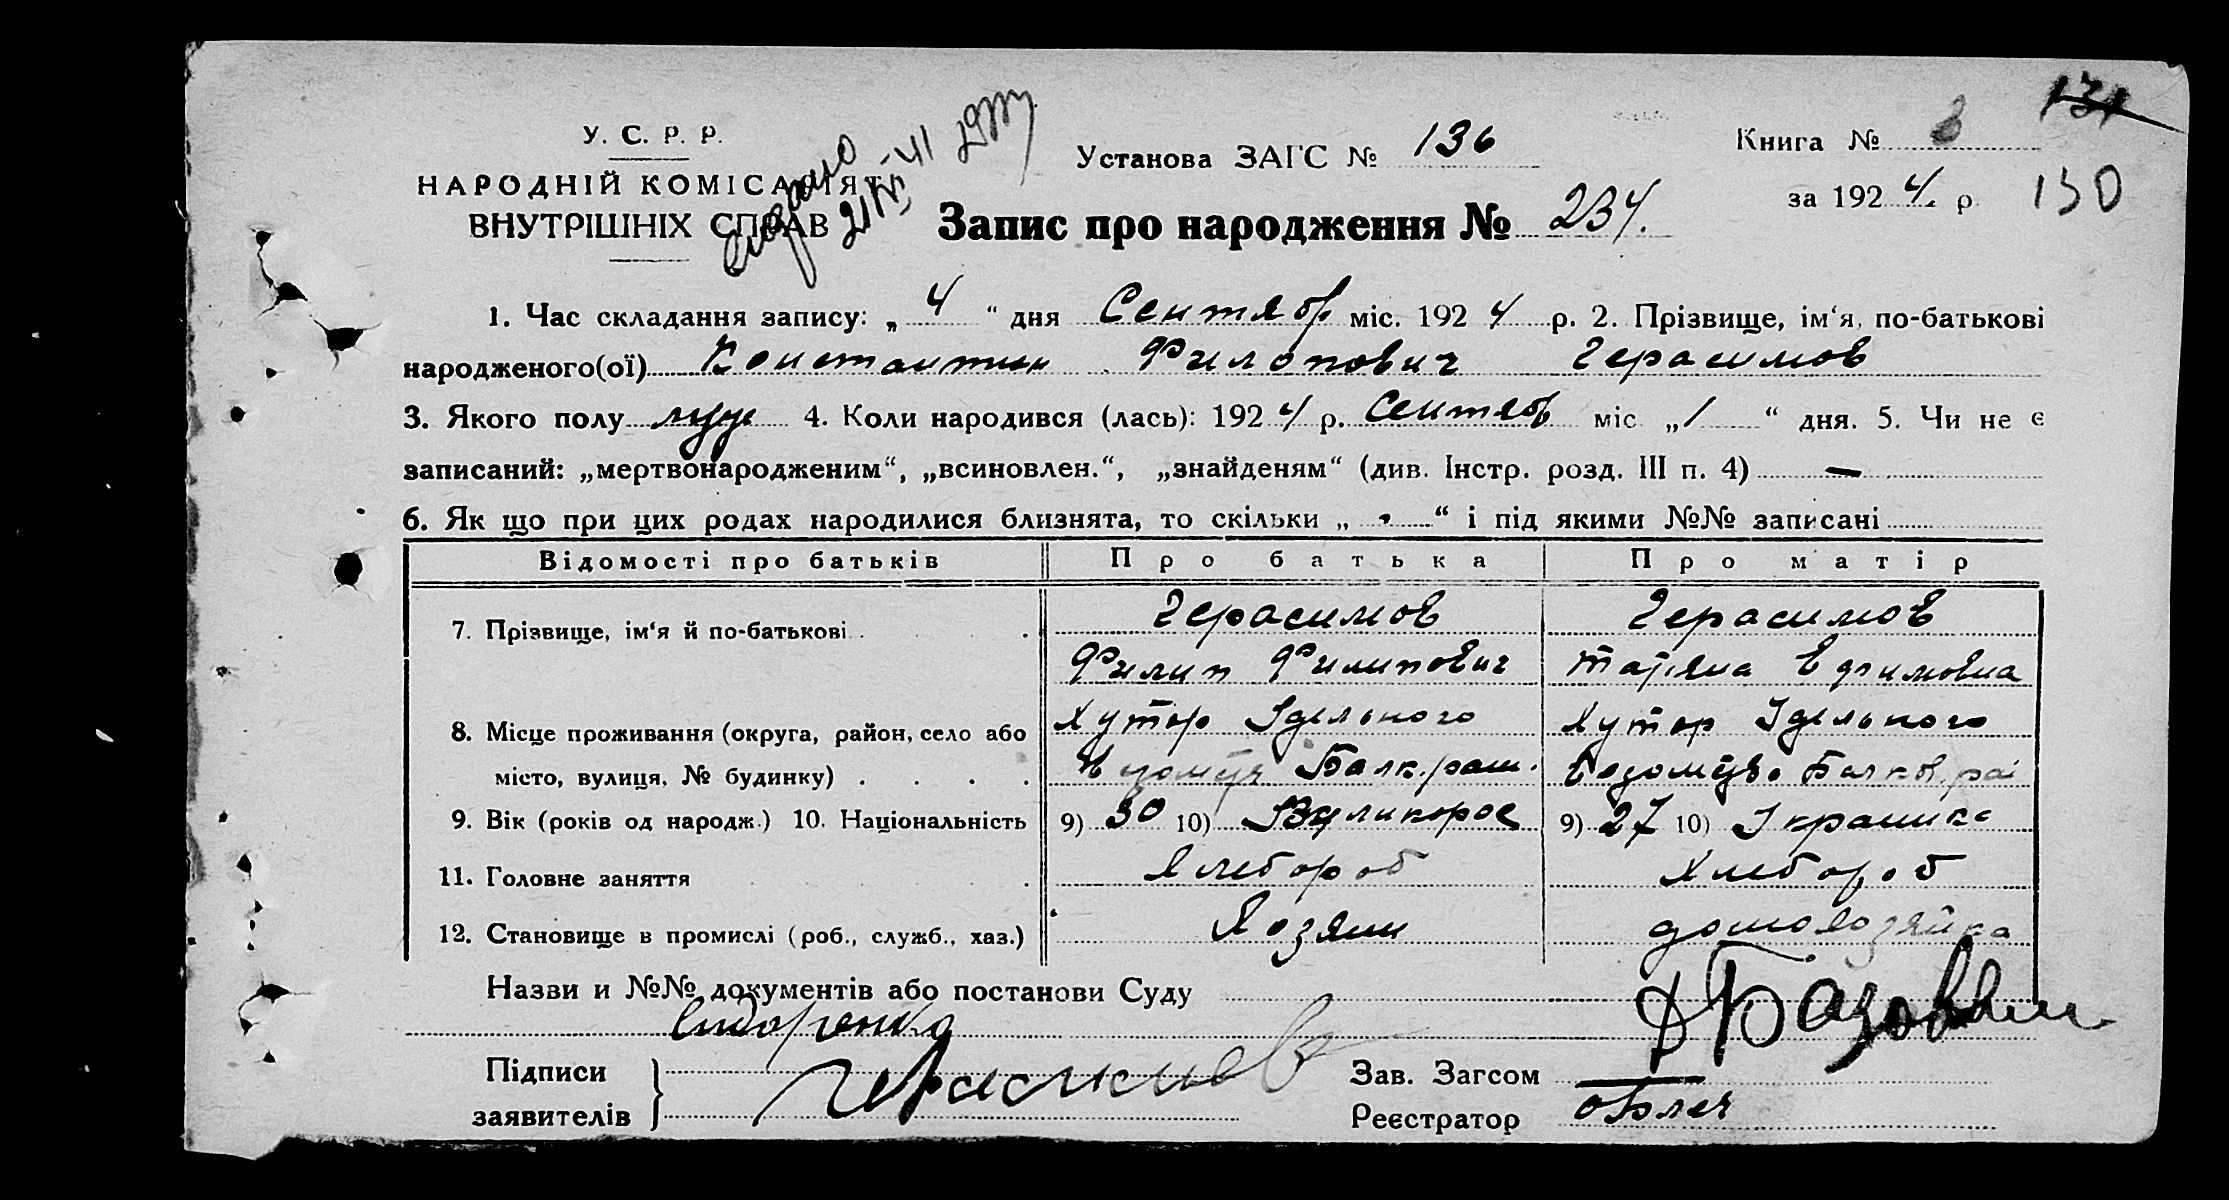 131
У. С. Р. Р.
Установа ЗАГС № 136
Книга № 3
НАРОДНІЙ КОМІСАРІЯТ
за 1924 р. 130
ВНУТРІШНІХ СПРАВ
Запис про народження № 234.
1. Час складання запису: „ 4 “ дня Сентябр міс. 1924 р. 2. Прізвище, ім‘я, по-батькові
народженого(ої) Константин Филопович Герасимов
3. Якого полу муж 4. Коли народився (лась): 1924 р. Сентяб міс. „ 1 “ дня. 5. Чи не є
записаний: „мертвонародженим“, „всиновлен.“, „знайденям“ (див. Інстр. розд. III п. 4) —
6. Як що при цих родах народилися близнята, то скільки „ - “ і під якими №№ записані
Відомості про батьків Про батька Про матір
7. Прізвище, ім‘я й по-батькові Герасимов Герасимов
Филип Филипович Татяна Ефимовна
8. Місце проживання (округа, район, село або Хутор Ідельного Хутор Ідельного
місто, вулиця, № будинку)
9. Вік (років од народж.) 10. Національність 9) 30 10) Великорос 9) 27 10) Украинка
11. Головне заняття Хлебороб Хлебороб
12. Становище в промислі (роб., служб., хаз.) Хозяин домохозяйка
Назви и №№ документів або постанови Суду
Сидоренко
Підписи
заявителів
Герасимов
Зав. Загсом
Реєстратор